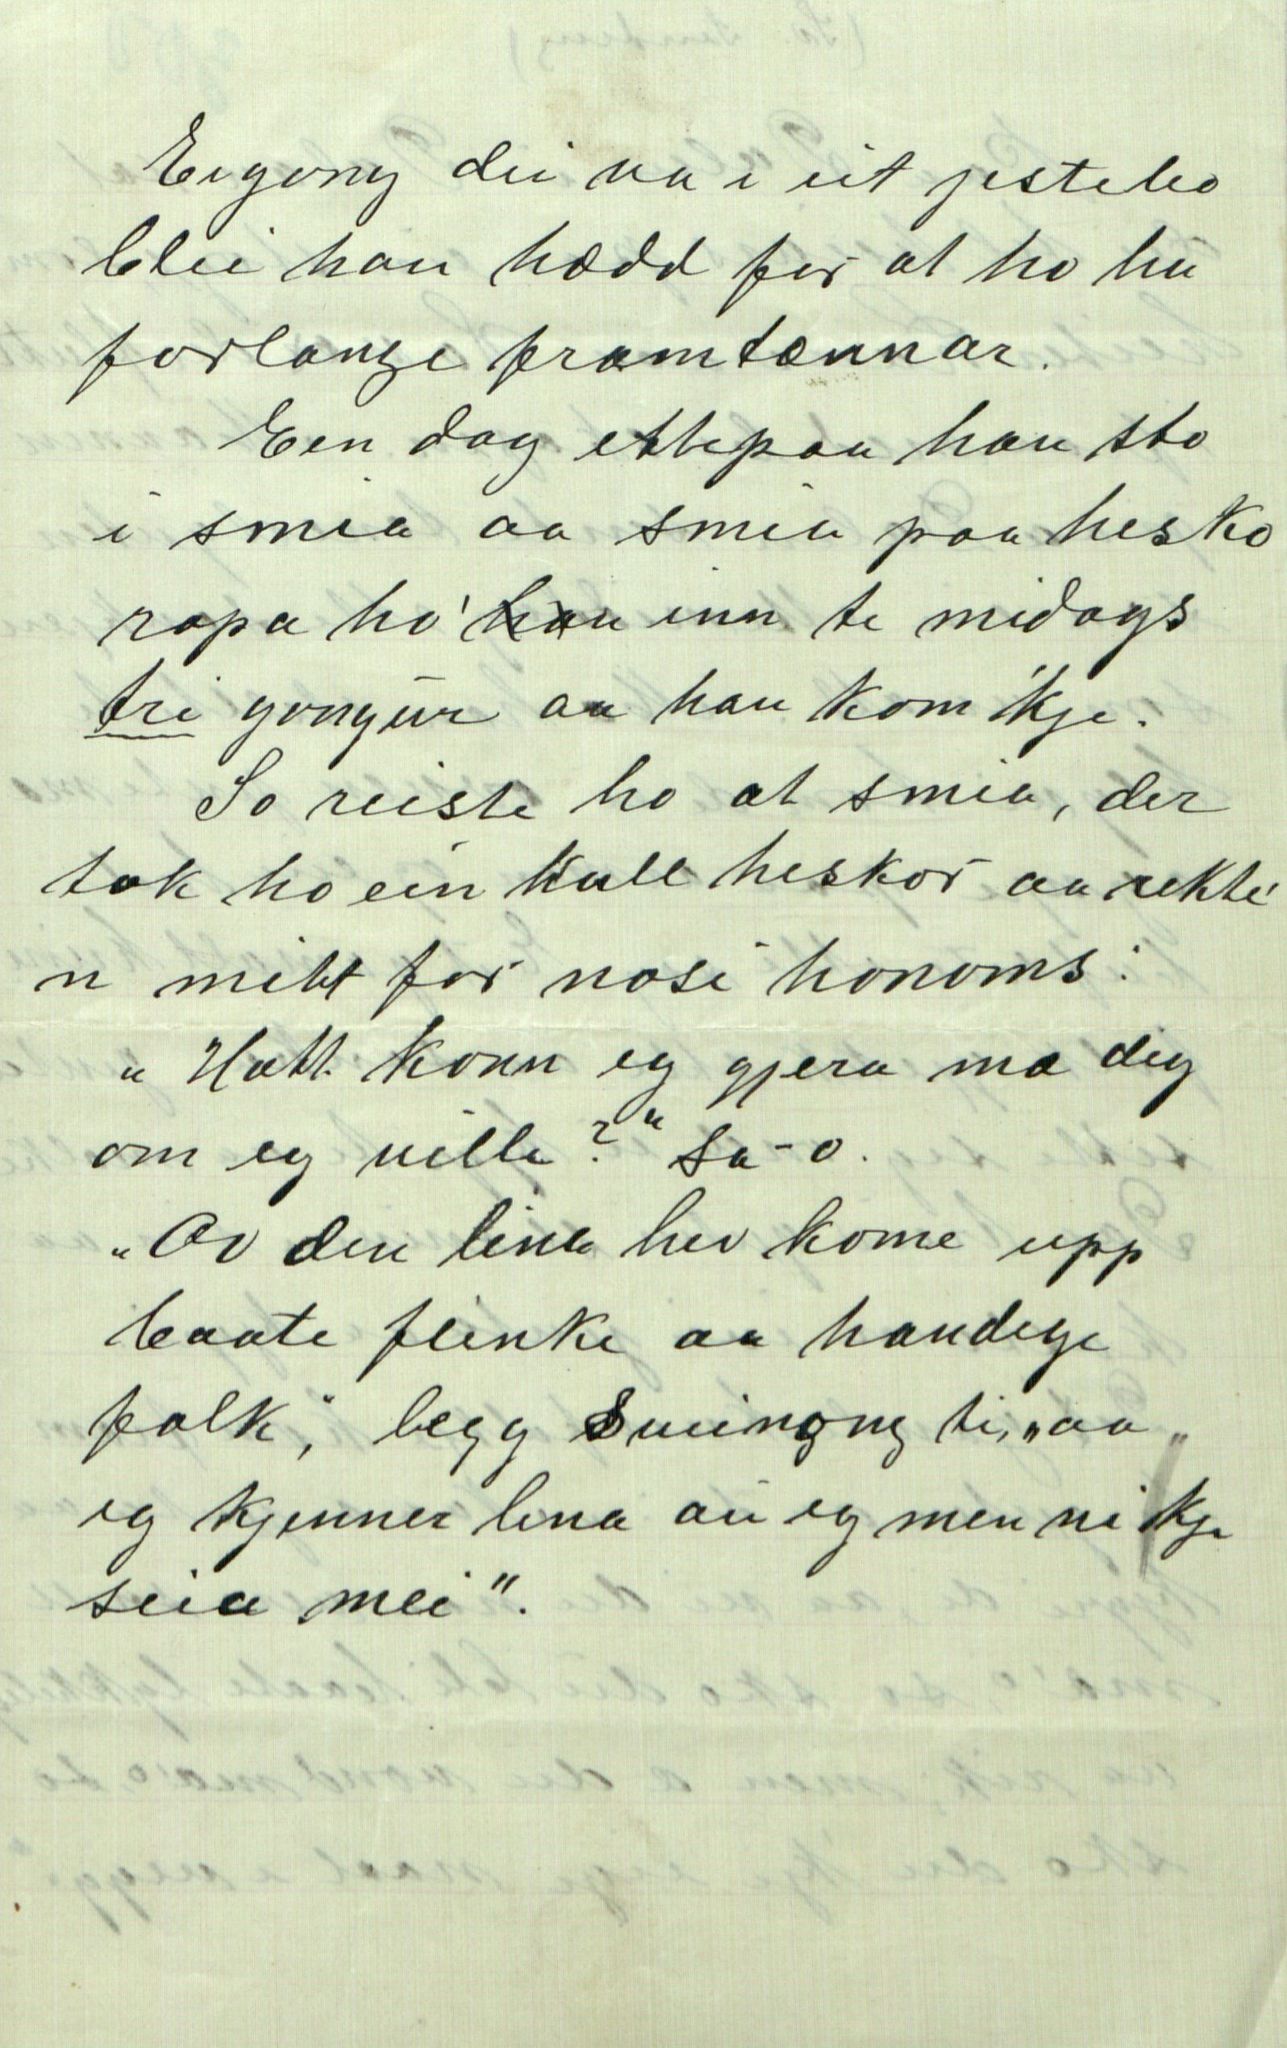 Eigong dei va i eit jestebo
blei han hædd for at ho hā
forlange framtænnar.
Een dag ettepaa han sto
i smia aa smia paa hesko
ropa ho' inn te midags
tri gongur aa han kom 'kje.
So reiste ho at smia, der
tok ho ein kall heskor aa rekte'
n mitt for nosi honoms:
"Hatt konn eg gjera mæ deg
om eg ville?" sa-o.
"Av den lina hev kome upp
baate flinke aa handege
folk," legg Sveinong ti, "aa
eg kjenner lina au eg men ni kje
seia mei".